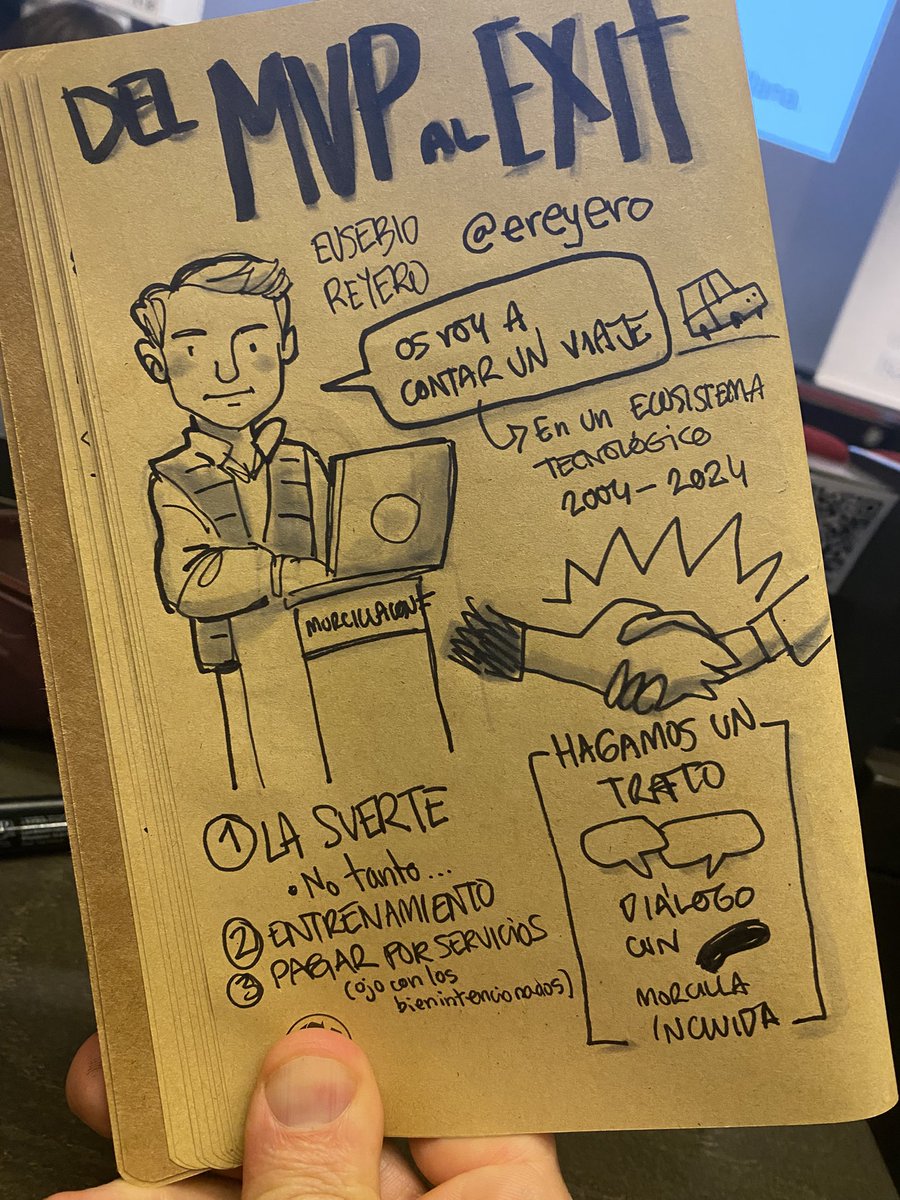 DEL MVP AL EXIT
EUSEBIO
REYERO
@ereyero
OS VOY A
CONTAR UN VIAJE
En un ECOSISTEMA
TECNOLÓGICO
2004-2024
MORCILLACONF
HAGAMOS UN
TRATO
DIÁLOGO
CON
MORCILLA
INCLUIDA
1 LA SUERTE
. No tanto...
2 ENTRENAMIENTO
3 PAGAR POR SERVICIOS
(ojo con los
bienintencionados)